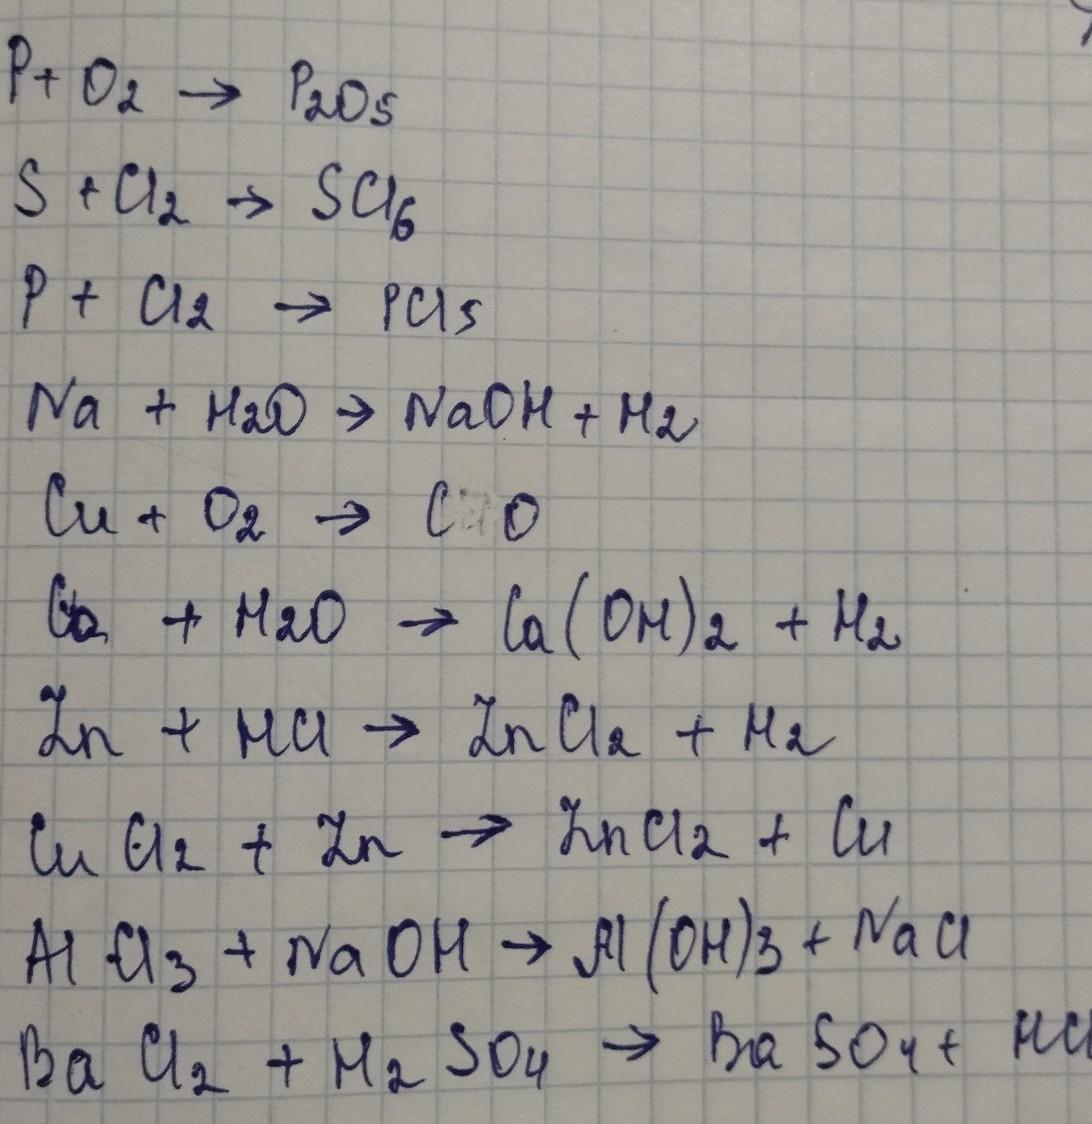 P + O2 → P2O5
S + Cl2 → SCl6
P + Cl2 → PCl5
Na + H2O → NaOH + H2
Cu + O2 → C O
Ca + H2O → Ca(OH)2 + H2
Zn + HCl → ZnCl2 + H2
CuCl2 + Zn → ZnCl2 + Cu
AlCl3 + NaOH → Al(OH)3 + NaCl
BaCl2 + H2SO4 → BaSO4 + HCl